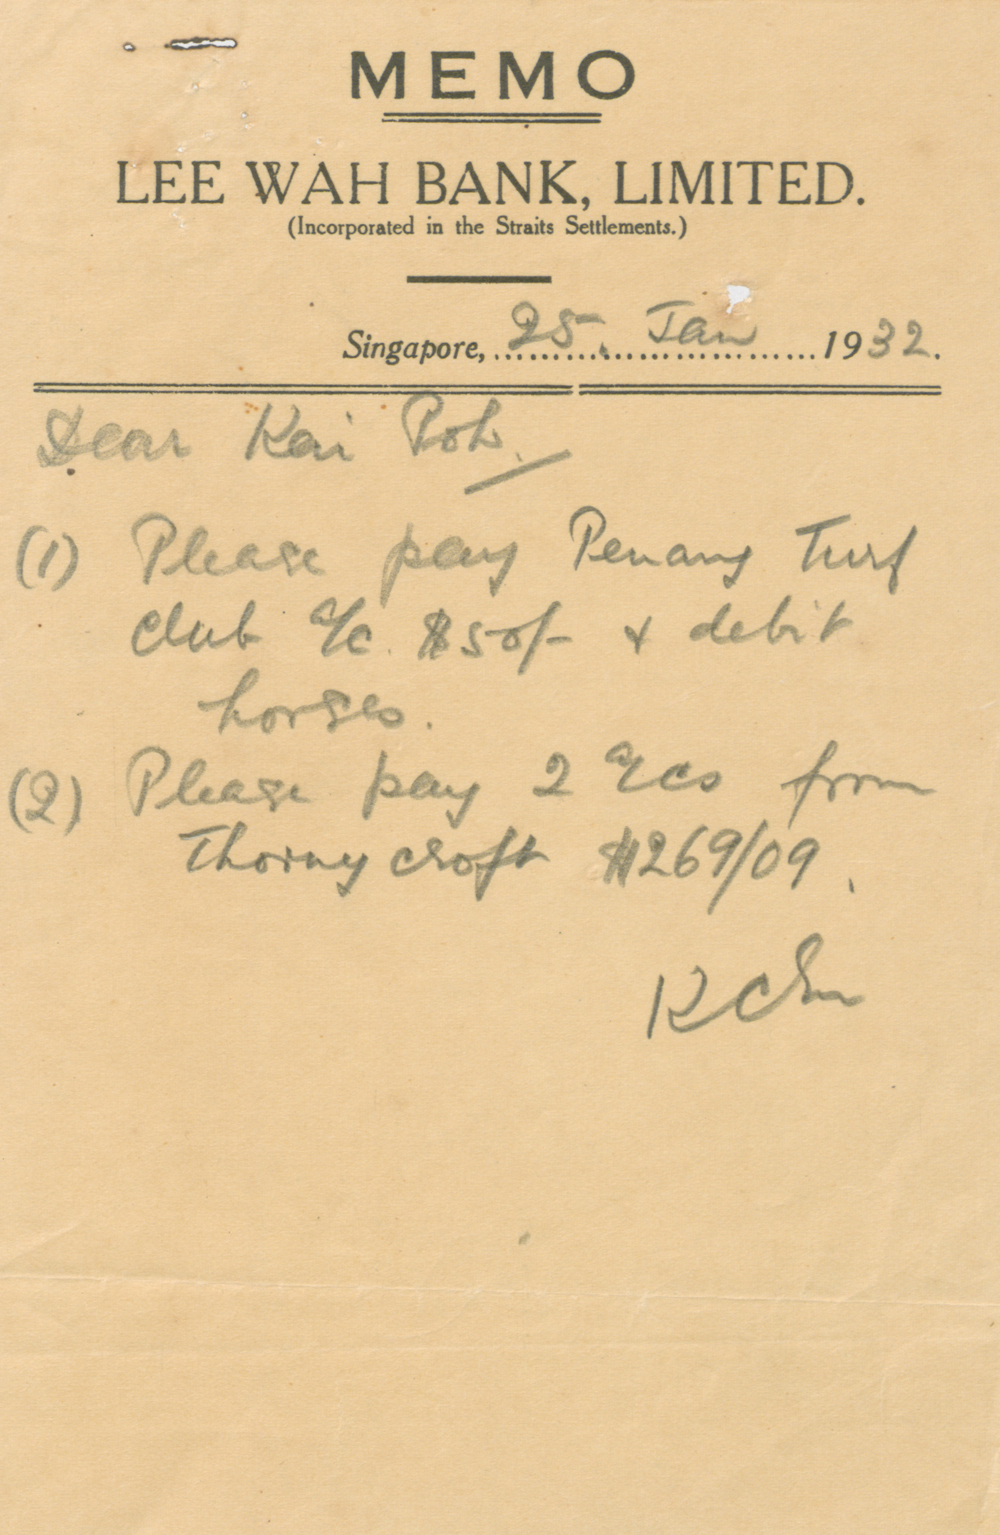 MEMO
LEE WAH BANK, LIMITED.
(Incorporated in the Straits Settlements.)
Singapore, 25. Jan 1932.
Dear Kai Poh.
(1) Please pay Penang Turf
club a/c. $50/- & debit
horses.
(2) Please pay 2 a/cs from
Thornycroft $269/09.